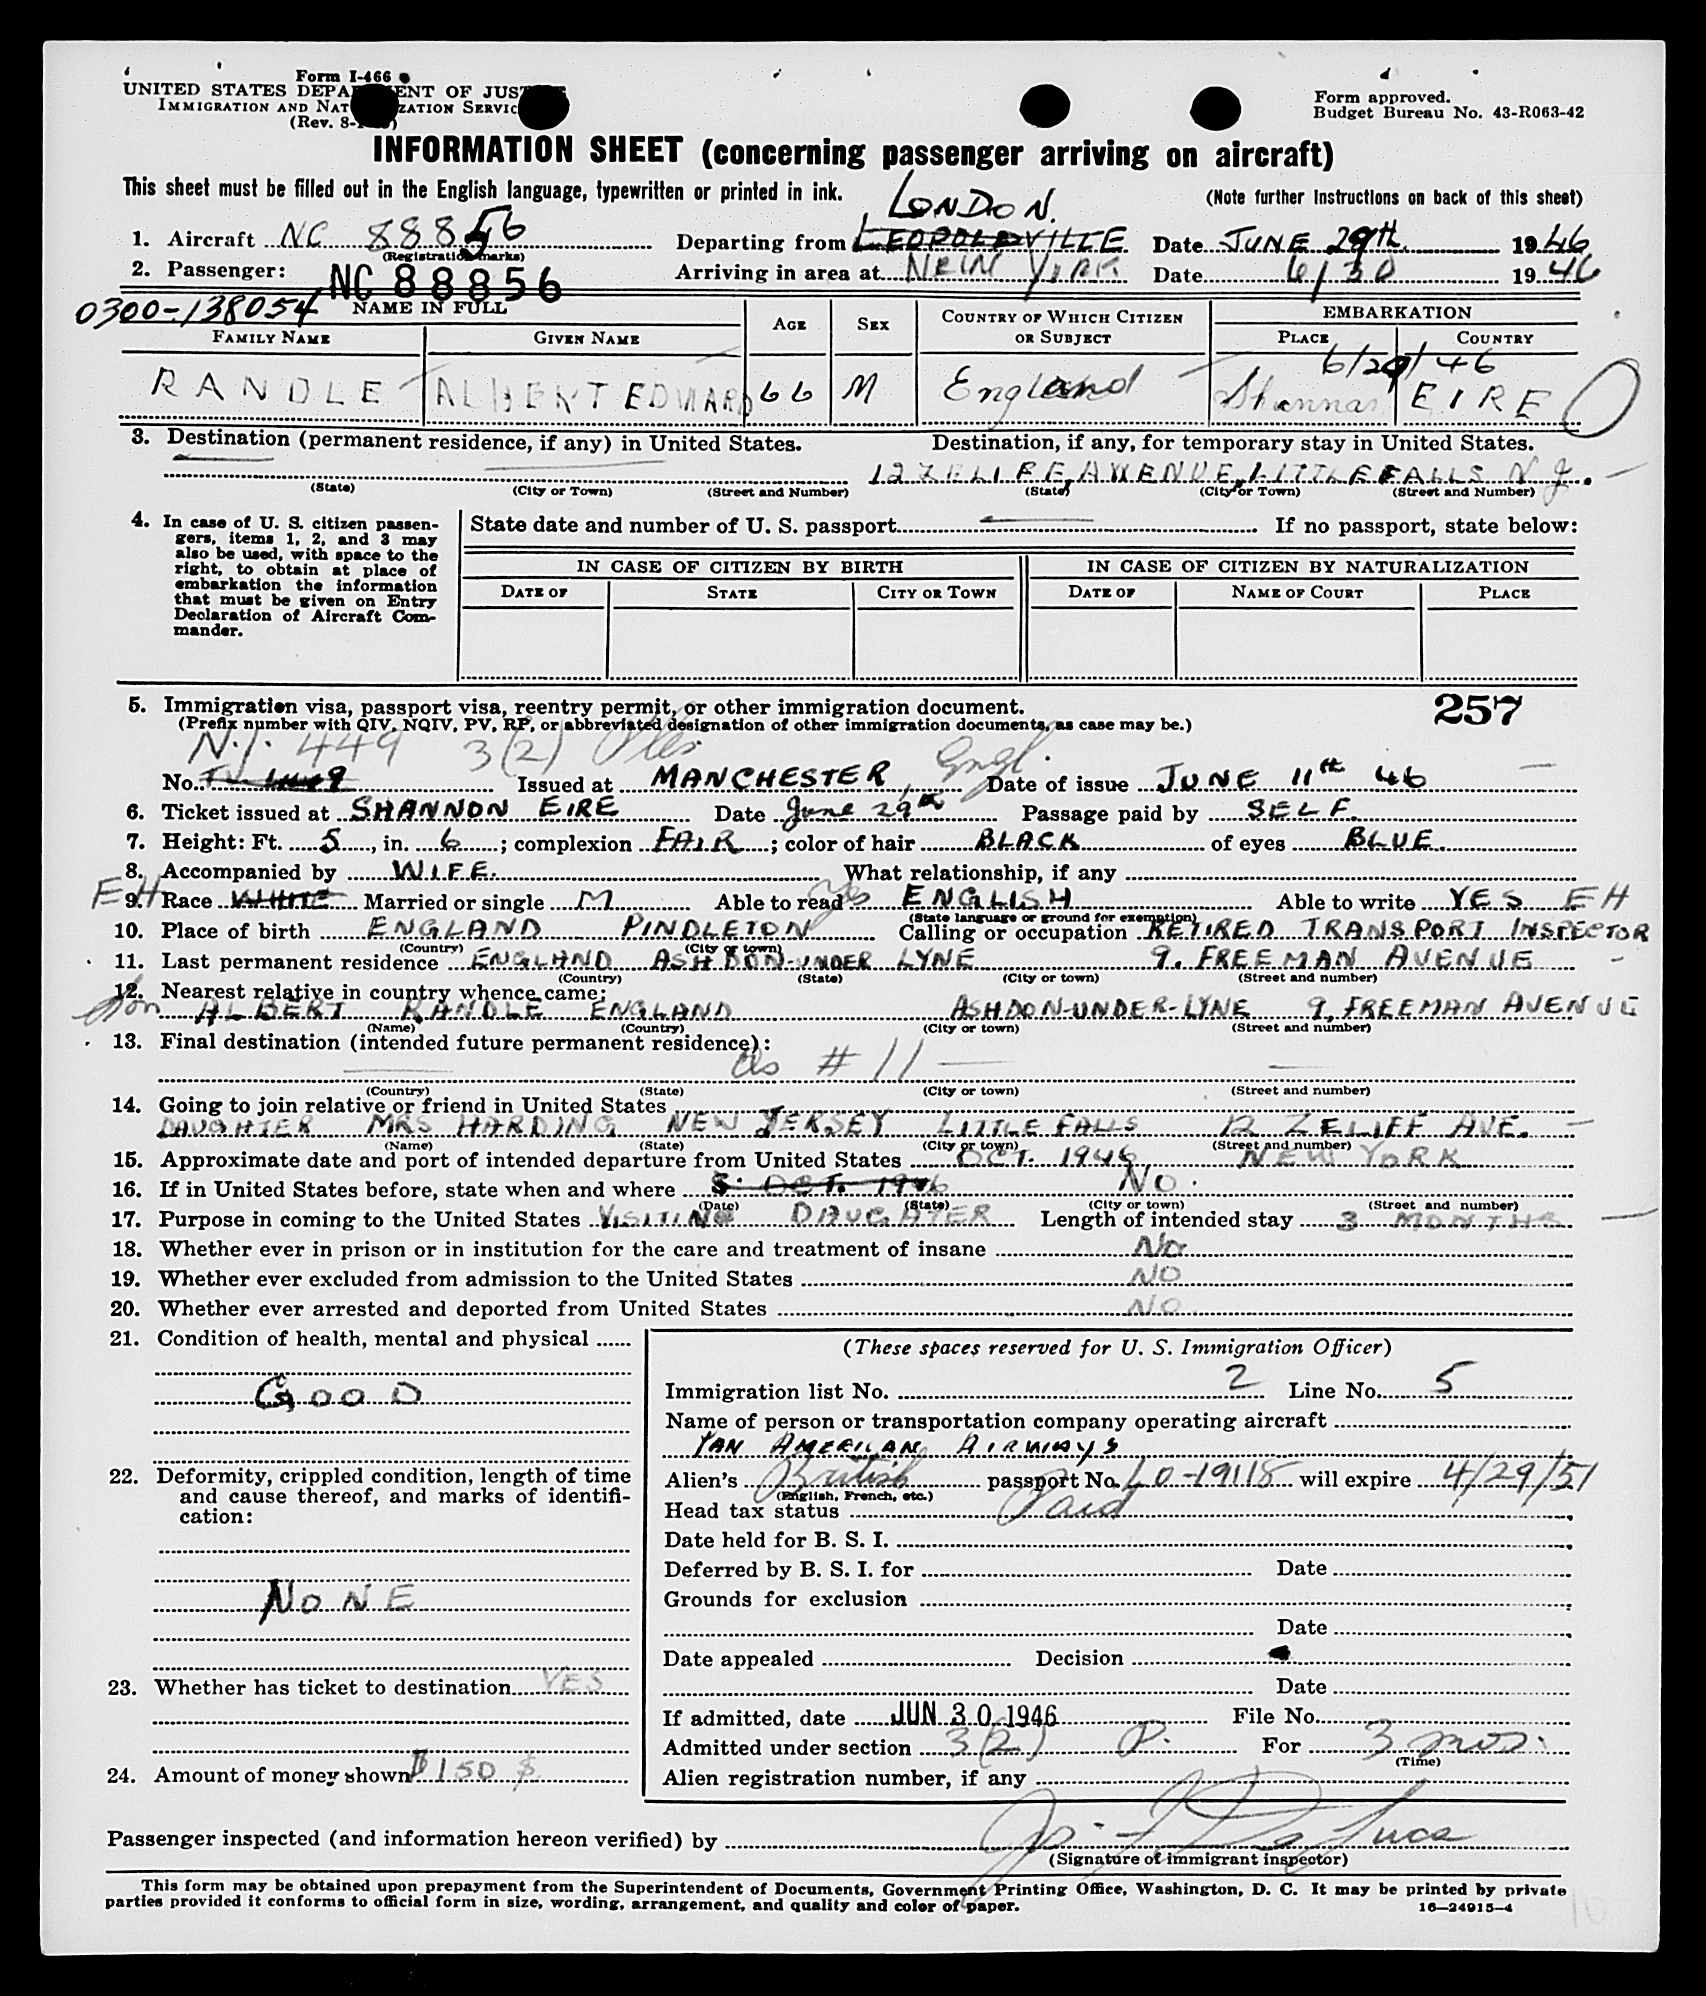 Form I-466
UNITED STATES DEPA ENT OF JUS
IMMIGRATION AND NAT ZATION SERVIC
(Rev. 8-
Form approved.
Budget Bureau No. 43-R063-42
INFORMATION SHEET (concerning passenger arriving on aircraft)
This sheet must be filled out in the English language, typewritten or printed in ink.
(Note further instructions on back of this sheet)
LONDON.
1. Aircraft NC 88856 Departing from LEOPOLDVILLE Date JUNE 29th 1946
(Registration marks)
2. Passenger: NC 88856 Arriving in area at NEW YORK Date 6/30 1946
0300-138054 NAME IN FULL AGE SEX COUNTRY OF WHICH CITIZEN OR SUBJECT EMBARKATION
FAMILY NAME GIVEN NAME PLACE COUNTRY
6/29/46
RANDLE ALBERT EDWARD 66 M England Shannon EIRE
3. Destination (permanent residence, if any) in United States. Destination, if any, for temporary stay in United States.
12 ZELIFE AVENUE, LITTLE FALLS N J.
(State) (City or Town) (Street and Number) (State) (City or Town) (Street and Number)
4. In case of U. S. citizen passen-
gers, items 1, 2, and 3 may
also be used, with space to the
right, to obtain at place of
embarkation the information
that must be given on Entry
Declaration of Aircraft Com-
mander.
State date and number of U. S. passport If no passport, state below:
IN CASE OF CITIZEN BY BIRTH IN CASE OF CITIZEN BY NATURALIZATION
DATE OF STATE CITY OR TOWN DATE OF NAME OF COURT PLACE
5. Immigration visa, passport visa, reentry permit, or other immigration document. 257
(Prefix number with QIV, NQIV, PV, RP, or abbreviated designation of other immigration documents, as case may be.)
449 3(2) Engl.
No. Issued at MANCHESTER, Date of issue JUNE 11th 46
6. Ticket issued at SHANNON EIRE Date June 29th Passage paid by SELF.
7. Height: Ft. 5, in. 6; complexion FAIR; color of hair BLACK of eyes BLUE.
8. Accompanied by WIFE. What relationship, if any
EH 9. Race WHITE Married or single M Able to read yes ENGLISH Able to write YES EH
(State language or ground for exemption)
10. Place of birth ENGLAND PINDLETON Calling or occupation RETIRED TRANSPORT INSPECTOR
(Country) (City or town)
11. Last permanent residence ENGLAND ASHDON-UNDER LYNE 9. FREEMAN AVENUE
(Country) (State) (City or town) (Street and number)
12. Nearest relative in country whence came:
son ALBERT RANDLE ENGLAND ASHDON-UNDER-LYNE 9, FREEMAN AVENUE
(Name) (Country) (City or town) (Street and number)
13. Final destination (intended future permanent residence):
as # 11
(Country) (State) (City or town) (Street and number)
14. Going to join relative or friend in United States
DAUGHTER MRS HARDING NEW JERSEY LITTLE FALLS 12 ZELIFF AVE.
(Name) (State) (City or town) (Street and number)
15. Approximate date and port of intended departure from United States OCT. 1946 NEW YORK
16. If in United States before, state when and where OCT. 1946 No.
(Date) (State) (City or town) (Street and number)
17. Purpose in coming to the United States VISITING DAUGHTER Length of intended stay 3 MONTHS
18. Whether ever in prison or in institution for the care and treatment of insane No
19. Whether ever excluded from admission to the United States NO
20. Whether ever arrested and deported from United States NO.
21. Condition of health, mental and physical
GOOD
22. Deformity, crippled condition, length of time
and cause thereof, and marks of identifi-
cation:
NONE
23. Whether has ticket to destination YES
24. Amount of money shown $150 $
(These spaces reserved for U. S. Immigration Officer)
Immigration list No. 2 Line No. 5
Name of person or transportation company operating aircraft
PAN AMERICAN AIRWAYS
Alien's British passport No. LO-19118 will expire 4/29/51
(English, French, etc.)
Head tax status Paid
Date held for B. S. I.
Deferred by B. S. I. for Date
Grounds for exclusion
Date
Date appealed Decision
Date
If admitted, date JUN 30 1946 File No.
Admitted under section 3(2) P. For 3 mos.
(Time)
Alien registration number, if any
Passenger inspected (and information hereon verified) by De Luca
(Signature of immigrant inspector)
This form may be obtained upon prepayment from the Superintendent of Documents, Government Printing Office, Washington, D. C. It may be printed by private
parties provided it conforms to official form in size, wording, arrangement, and quality and color of paper.
16—24915-4